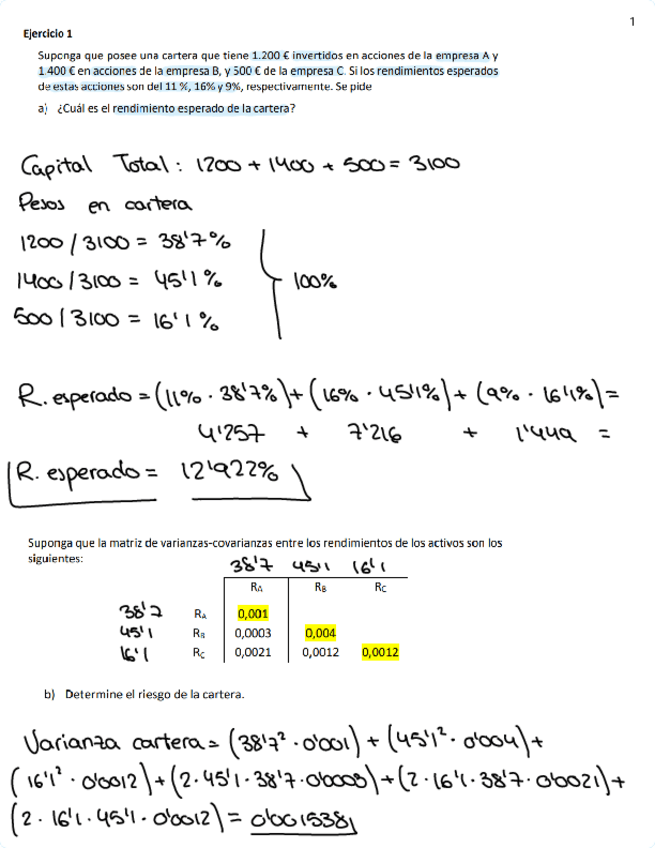 1
Ejercicio 1
Suponga que posee una cartera que tiene 1.200 € invertidos en acciones de la empresa A y
1.400 € en acciones de la empresa B, y 500 € de la empresa C. Si los rendimientos esperados
de estas acciones son del 11 %, 16% y 9%, respectivamente. Se pide
a) ¿Cuál es el rendimiento esperado de la cartera?
Capital Total: 1200 + 1400 + 500 = 3100
Pesos en cartera
1200 / 3100 = 38'7%
1400 / 3100 = 45'1%
100%
500 / 3100 = 16'1%
R. esperado = (11% · 38'7%) + (16% · 45'1%) + (9% · 16'1%) =
4'257 + 7'216 + 1'449 =
R. esperado = 12'922%
Suponga que la matriz de varianzas-covarianzas entre los rendimientos de los activos son los
siguientes:
38'7 45'1 16'1
RA RB RC
38'7 RA 0,001
45'1 RB 0,0003 0,004
16'1 RC 0,0021 0,0012 0,0012
b) Determine el riesgo de la cartera.
Varianza cartera = (38'7² · 0'001) + (45'1² · 0'004) +
(16'1² · 0'0012) + (2 · 45'1 · 38'7 · 0'0003) + (2 · 16'1 · 38'7 · 0'0021) +
(2 · 16'1 · 45'1 · 0'0012) = 0'0015381